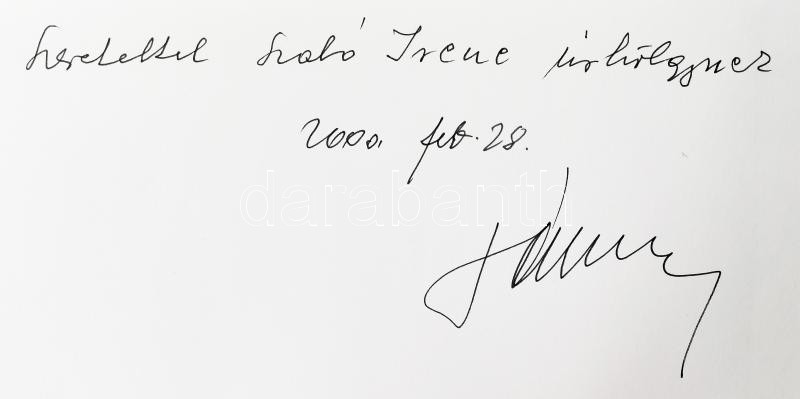 Szeretettel Szabó Irene úrhölgynek
2000. feb. 28.
darabanth